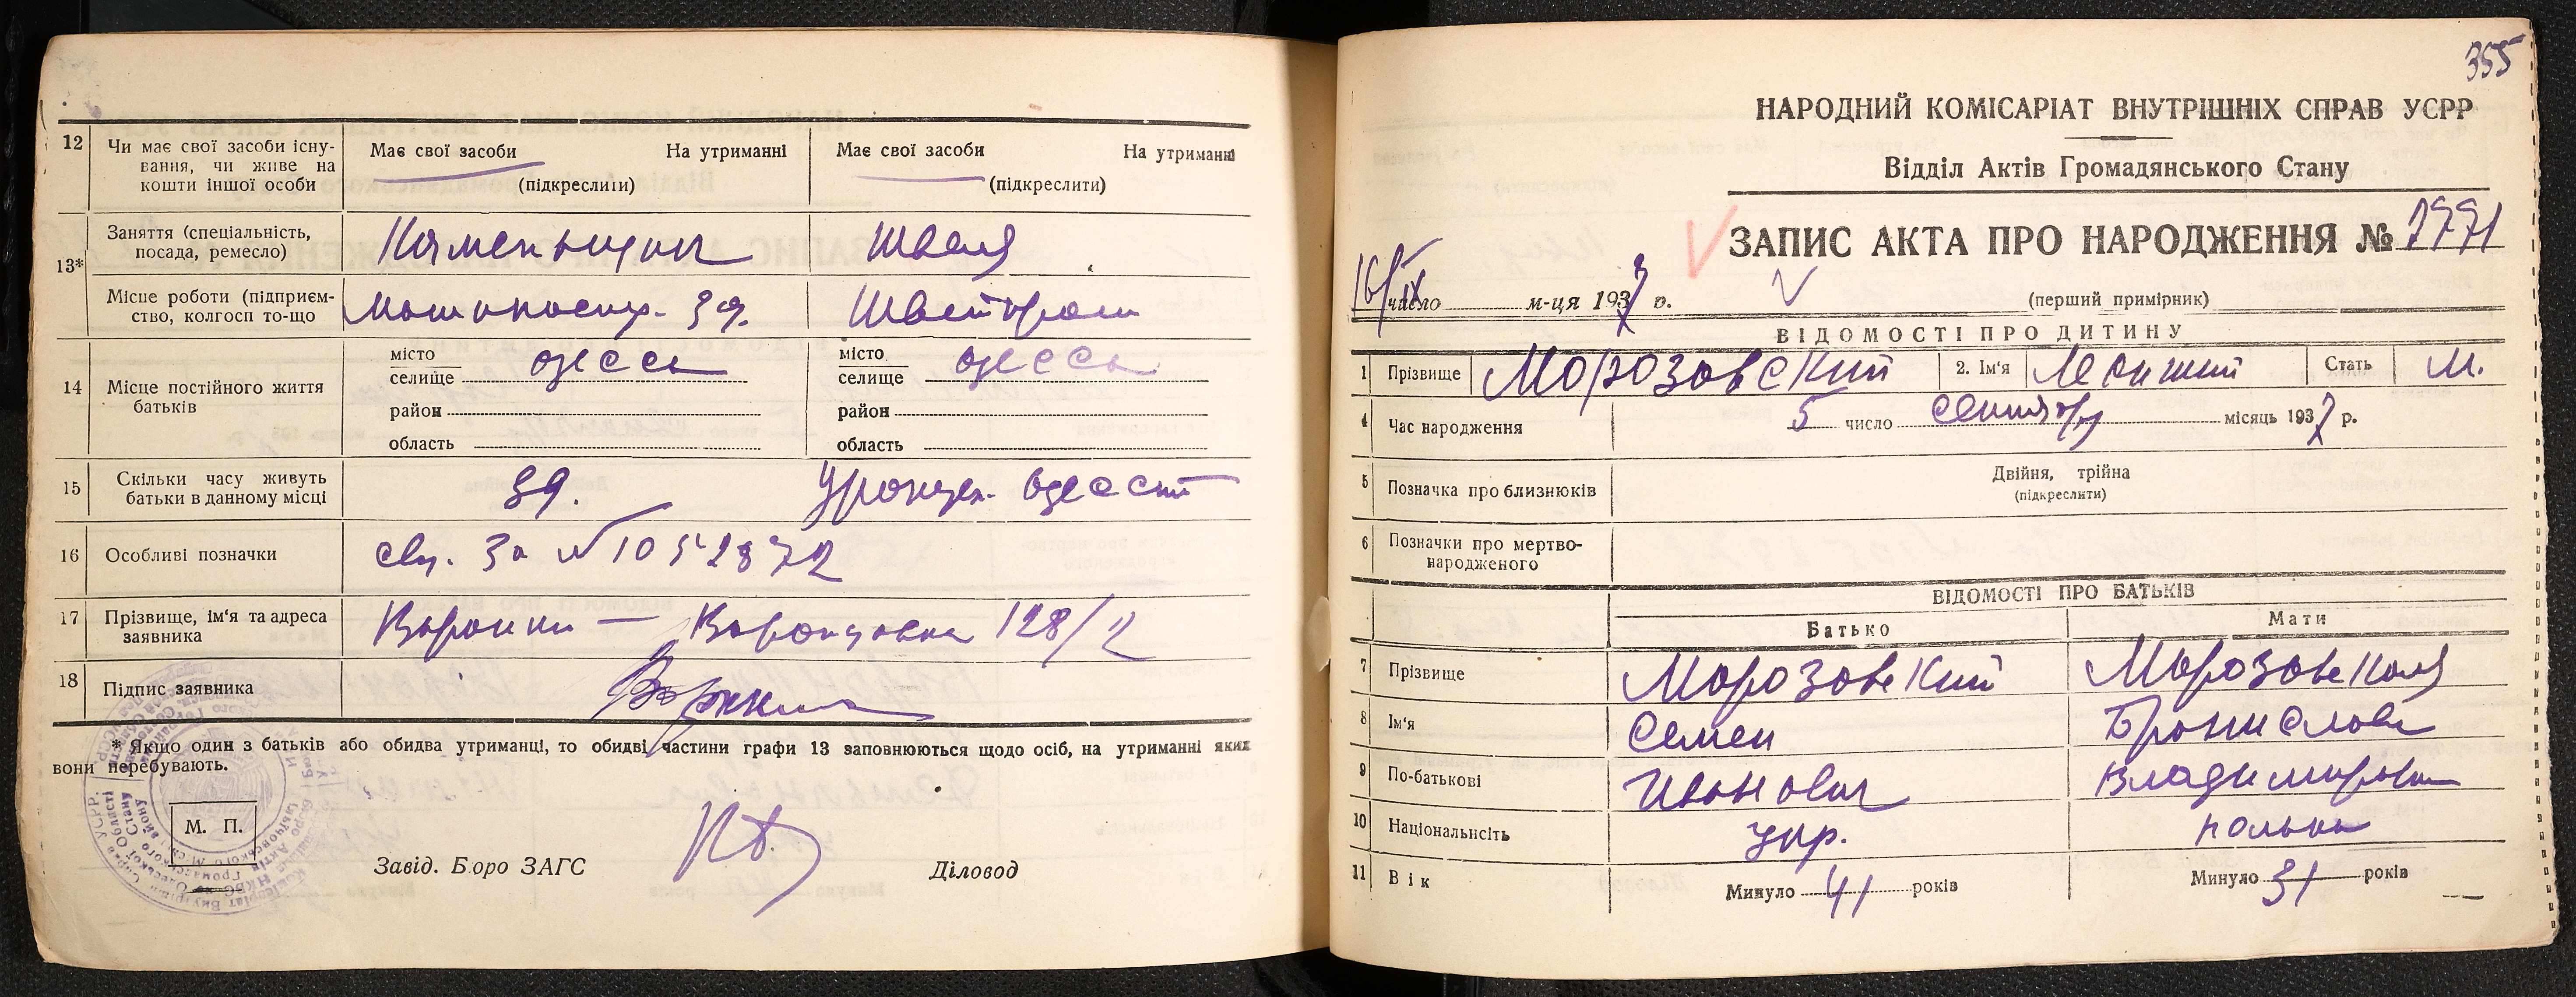 12 Чи має свої засоби існування, чи живе на кошти іншої особи
Має свої засоби На утриманні (підкреслити)
Має свої засоби На утриманні (підкреслити)
13* Заняття (спеціальність, посада, ремесло)
Каменьщик Швея
Місце роботи (підприємство, колгосп то-що
14 Місце постійного життя батьків
місто селище Одесса
район
область
місто селище Одесса
район
область
15 Скільки часу живуть батьки в данному місці
Урожен. Одессы
16 Особливі позначки
За № 1052872
17 Прізвище, ім'я та адреса заявника
128/2
18 Підпис заявника
* Якщо один з батьків або обидва утриманці, то обидві частини графи 13 заповнюються щодо осіб, на утриманні яких
вони перебувають.
М. П.
Завід. Бюро ЗАГС Діловод
355
НАРОДНИЙ КОМІСАРІАТ ВНУТРІШНІХ СПРАВ УСРР
Відділ Актів Громадянського Стану
ЗАПИС АКТА ПРО НАРОДЖЕННЯ № 1771
16/IX число м-ця 1937 р.
(перший примірник)
ВІДОМОСТІ ПРО ДИТИНУ
1 Прізвище Морозовский 2. Ім'я Стать М.
4 Час народження 5 число Сентября місяць 1937 р.
5 Позначка про близнюків Двійня, трійна
(підкреслити)
6 Позначки про мертвонародженого
ВІДОМОСТІ ПРО БАТЬКІВ
Батько Мати
7 Прізвище Морозовский Морозовская
8 Ім'я Семен Бронислава
9 По-батькові Иванович Владимировна
10 Національнсіть укр. полька
11 Вік Минуло 41 років Минуло 31 років